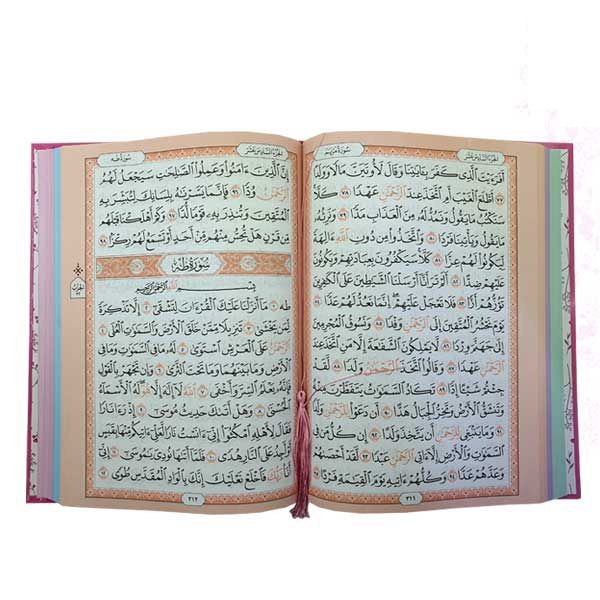 الجزء السادس عشر سورة مريم
أَفَرَءَيْتَ ٱلَّذِي كَفَرَ بِـَٔايَٰتِنَا وَقَالَ لَأُوتَيَنَّ مَالًا وَوَلَدًا
٧٧ أَطَّلَعَ ٱلْغَيْبَ أَمِ ٱتَّخَذَ عِندَ ٱلرَّحْمَٰنِ عَهْدًا ٧٨ كَلَّا
سَنَكْتُبُ مَا يَقُولُ وَنَمُدُّ لَهُۥ مِنَ ٱلْعَذَابِ مَدًّا ٧٩ وَنَرِثُهُۥ
مَا يَقُولُ وَيَأْتِينَا فَرْدًا ٨٠ وَٱتَّخَذُوا۟ مِن دُونِ ٱللَّهِ ءَالِهَةً
لِّيَكُونُوا۟ لَهُمْ عِزًّا ٨١ كَلَّا سَيَكْفُرُونَ بِعِبَادَتِهِمْ وَيَكُونُونَ
عَلَيْهِمْ ضِدًّا ٨٢ أَلَمْ تَرَ أَنَّآ أَرْسَلْنَا ٱلشَّيَٰطِينَ عَلَى ٱلْكَٰفِرِينَ
تَؤُزُّهُمْ أَزًّا ٨٣ فَلَا تَعْجَلْ عَلَيْهِمْ إِنَّمَا نَعُدُّ لَهُمْ عَدًّا ٨٤
يَوْمَ نَحْشُرُ ٱلْمُتَّقِينَ إِلَى ٱلرَّحْمَٰنِ وَفْدًا ٨٥ وَنَسُوقُ ٱلْمُجْرِمِينَ
إِلَىٰ جَهَنَّمَ وِرْدًا ٨٦ لَّا يَمْلِكُونَ ٱلشَّفَٰعَةَ إِلَّا مَنِ ٱتَّخَذَ عِندَ
ٱلرَّحْمَٰنِ عَهْدًا ٨٧ وَقَالُوا۟ ٱتَّخَذَ ٱلرَّحْمَٰنُ وَلَدًا ٨٨ لَّقَدْ
جِئْتُمْ شَيْـًٔا إِدًّا ٨٩ تَكَادُ ٱلسَّمَٰوَٰتُ يَتَفَطَّرْنَ مِنْهُ
وَتَنشَقُّ ٱلْأَرْضُ وَتَخِرُّ ٱلْجِبَالُ هَدًّا ٩٠ أَن دَعَوْا۟ لِلرَّحْمَٰنِ وَلَدًا
٩١ وَمَا يَنۢبَغِي لِلرَّحْمَٰنِ أَن يَتَّخِذَ وَلَدًا ٩٢ إِن كُلُّ مَن فِي
ٱلسَّمَٰوَٰتِ وَٱلْأَرْضِ إِلَّآ ءَاتِي ٱلرَّحْمَٰنِ عَبْدًا ٩٣ لَّقَدْ أَحْصَىٰهُمْ
وَعَدَّهُمْ عَدًّا ٩٤ وَكُلُّهُمْ ءَاتِيهِ يَوْمَ ٱلْقِيَٰمَةِ فَرْدًا ٩٥
٣١١
الجزء السادس عشر سورة طه
إِنَّ ٱلَّذِينَ ءَامَنُوا۟ وَعَمِلُوا۟ ٱلصَّٰلِحَٰتِ سَيَجْعَلُ لَهُمُ
ٱلرَّحْمَٰنُ وُدًّا ٩٦ فَإِنَّمَا يَسَّرْنَٰهُ بِلِسَانِكَ لِتُبَشِّرَ بِهِ
ٱلْمُتَّقِينَ وَتُنذِرَ بِهِۦ قَوْمًا لُّدًّا ٩٧ وَكَمْ أَهْلَكْنَا قَبْلَهُم
مِّن قَرْنٍ هَلْ تُحِسُّ مِنْهُم مِّنْ أَحَدٍ أَوْ تَسْمَعُ لَهُمْ رِكْزًۢا ٩٨
سُورَةُ طه
بِسْمِ ٱللَّهِ ٱلرَّحْمَٰنِ ٱلرَّحِيمِ
طه ١ مَآ أَنزَلْنَا عَلَيْكَ ٱلْقُرْءَانَ لِتَشْقَىٰٓ ٢ إِلَّا تَذْكِرَةً
لِّمَن يَخْشَىٰ ٣ تَنزِيلًا مِّمَّنْ خَلَقَ ٱلْأَرْضَ وَٱلسَّمَٰوَٰتِ ٱلْعُلَى ٤
ٱلرَّحْمَٰنُ عَلَى ٱلْعَرْشِ ٱسْتَوَىٰ ٥ لَهُۥ مَا فِي ٱلسَّمَٰوَٰتِ وَمَا فِي
ٱلْأَرْضِ وَمَا بَيْنَهُمَا وَمَا تَحْتَ ٱلثَّرَىٰ ٦ وَإِن تَجْهَرْ بِٱلْقَوْلِ
فَإِنَّهُۥ يَعْلَمُ ٱلسِّرَّ وَأَخْفَى ٧ ٱللَّهُ لَآ إِلَٰهَ إِلَّا هُوَ لَهُ ٱلْأَسْمَآءُ
ٱلْحُسْنَىٰ ٨ وَهَلْ أَتَىٰكَ حَدِيثُ مُوسَىٰٓ ٩ إِذْ رَءَا نَارًا
فَقَالَ لِأَهْلِهِ ٱمْكُثُوٓا۟ إِنِّيٓ ءَانَسْتُ نَارًا لَّعَلِّيٓ ءَاتِيكُم مِّنْهَا بِقَبَسٍ
أَوْ أَجِدُ عَلَى ٱلنَّارِ هُدًى ١٠ فَلَمَّآ أَتَىٰهَا نُودِيَ يَٰمُوسَىٰٓ ١١ إِنِّيٓ
أَنَا۠ رَبُّكَ فَٱخْلَعْ نَعْلَيْكَ إِنَّكَ بِٱلْوَادِ ٱلْمُقَدَّسِ طُوًى ١٢
٣١٢